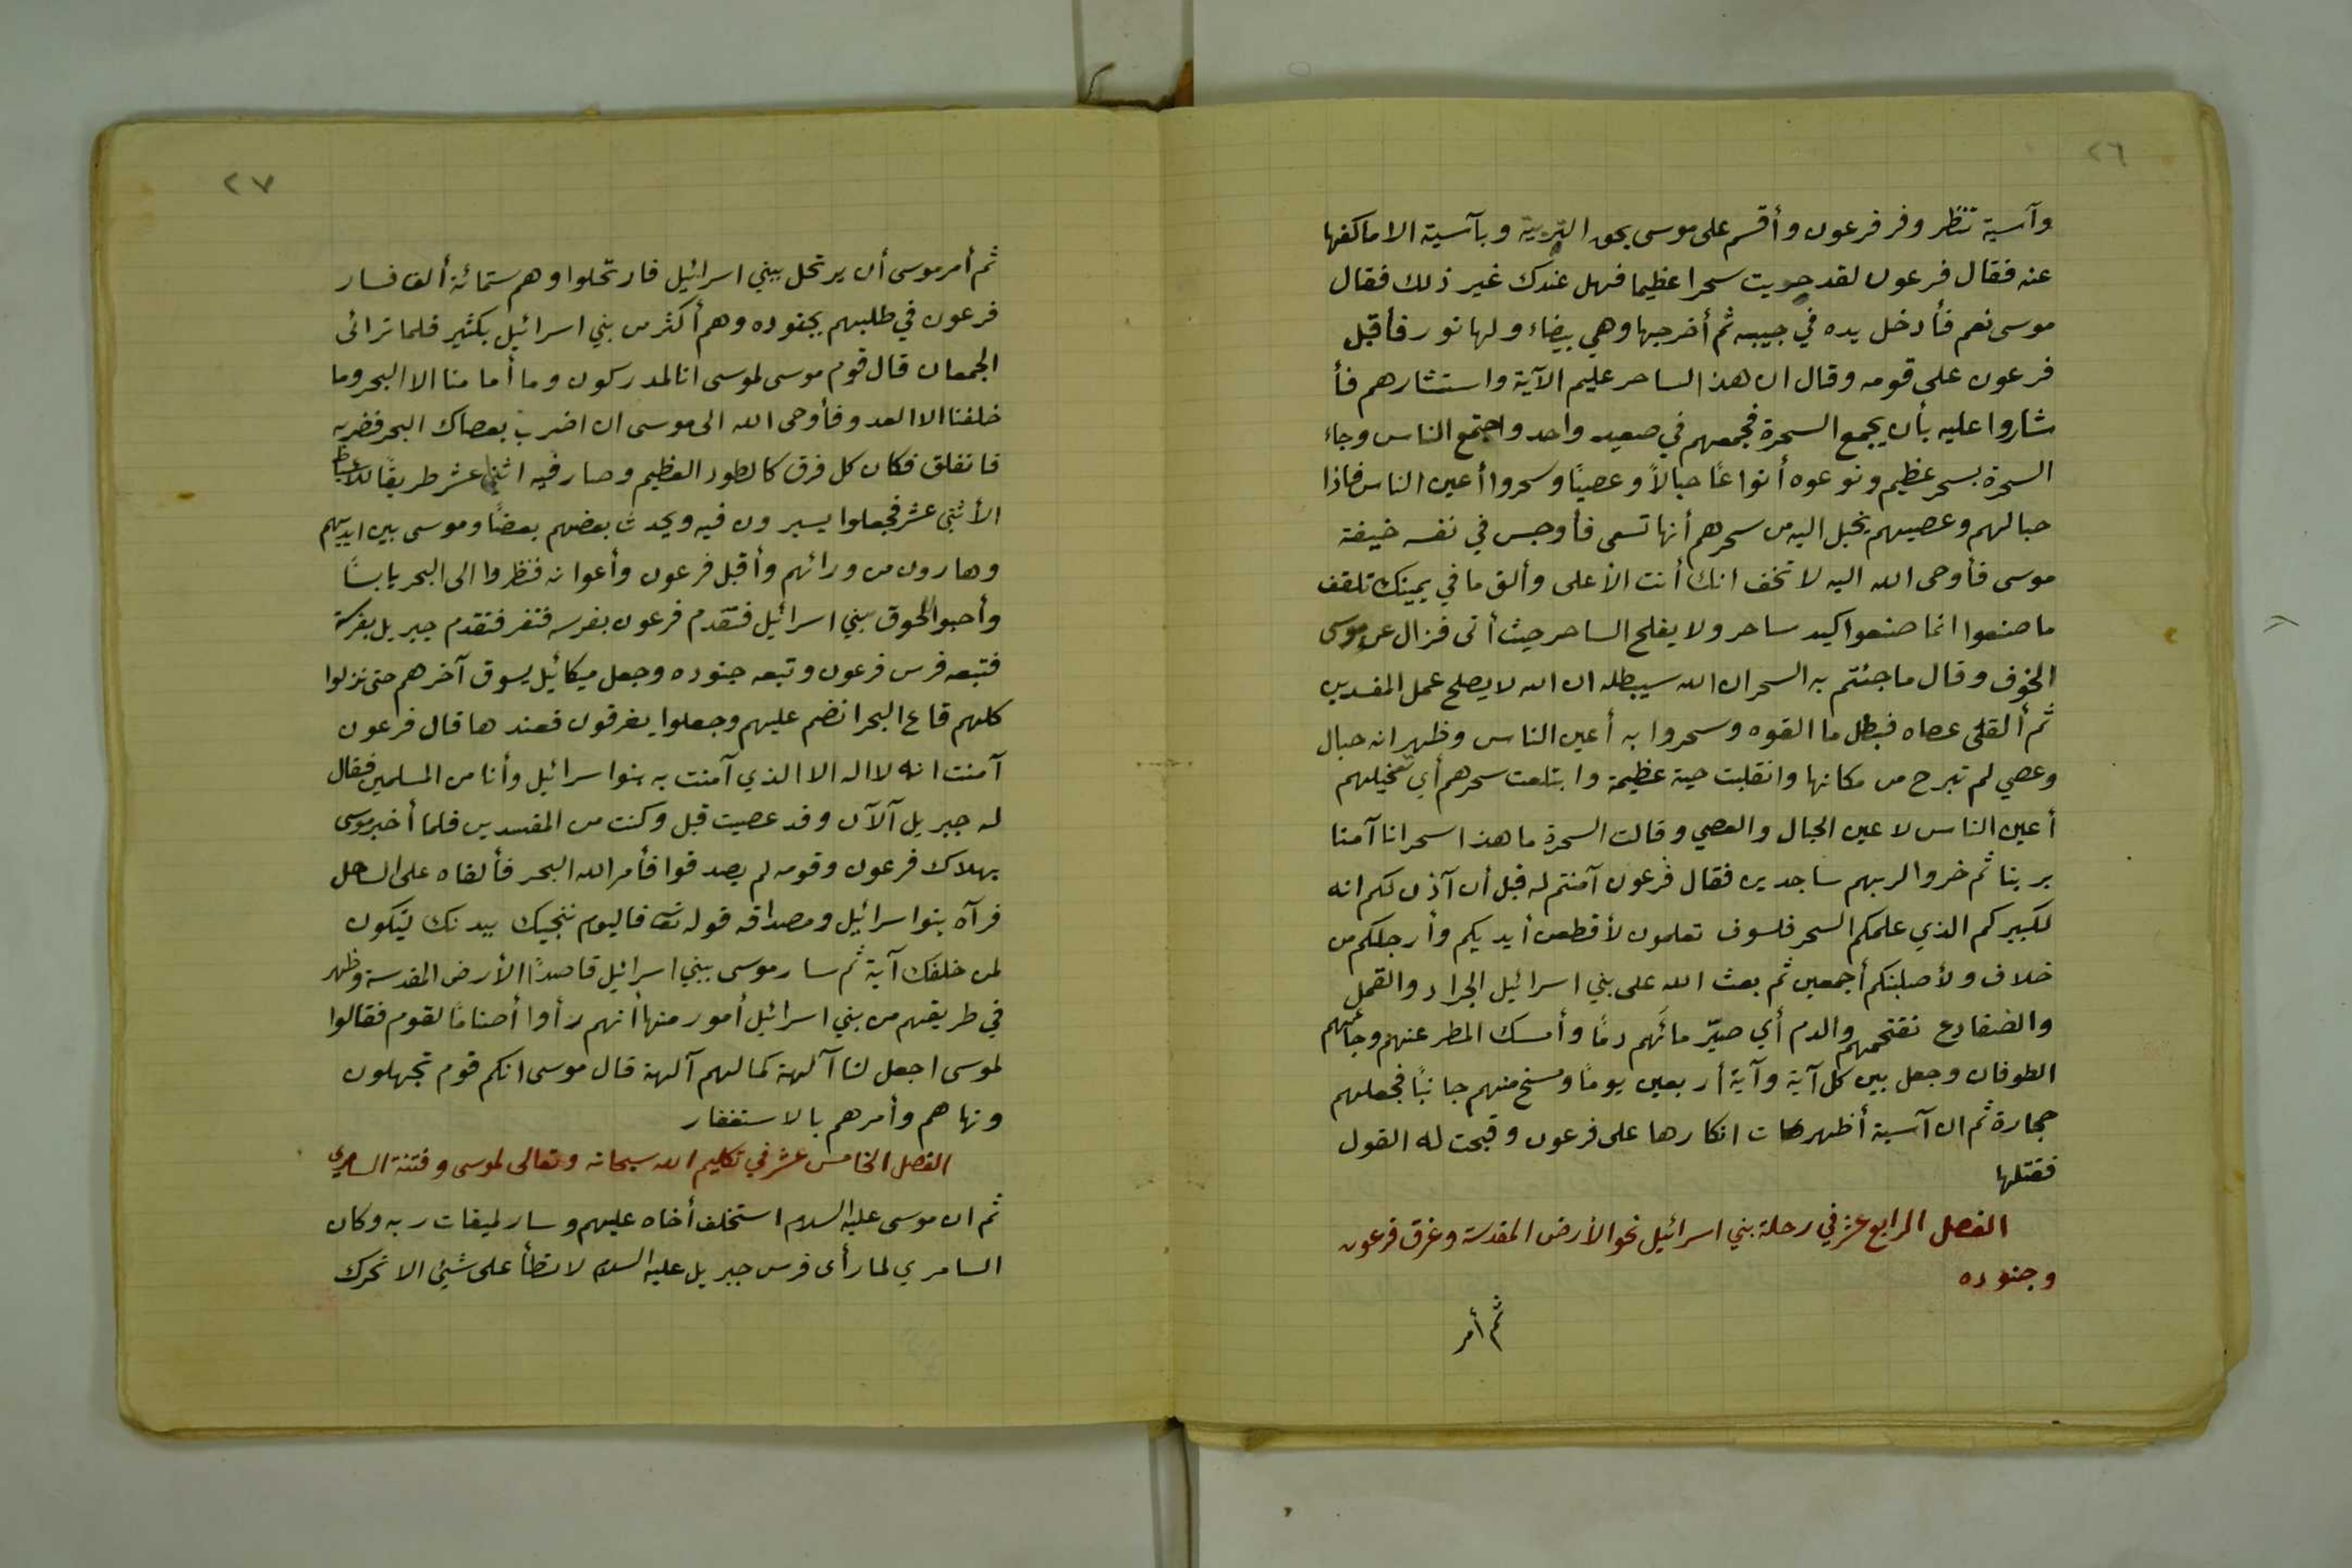 ٢٦
وآسية تنظر وفر فرعون وأقسم على موسى بحق التربية وبآسية الا ماكفها
عنه فقال فرعون لقد حويت سحرا عظيما فهل عندك غير ذلك فقال
موسى نعم فأدخل يده في جيبه ثم أخرجها وهي بيضاء ولها نور فأقبل
فرعون على قومه وقال ان هذا لساحر عليم الآية واستشارهم فأ
شاروا عليه بأن يجمع السحرة فجمعهم في صعيد واحد واجتمع الناس وجاء
السحرة بسحر عظيم ونوعوه أنواعًا حبالاً وعصيًا وسحروا أعين الناس فاذا
حبالهم وعصيهم يخيل اليه من سحرهم أنها تسعى فأوجس في نفسه خيفة
موسى فأوحى الله اليه لا تخف انك أنت الأعلى وألق ما في يمينك تلقف
ما صنعوا انما صنعوا كيد ساحر ولا يفلح الساحر حيث أتى فزال عن موسى
الخوف وقال ما جئتم به السحر ان الله سيبطله ان الله لا يصلح عمل المفسدين
ثم ألقى عصاه فبطل ما القوه وسحروا به أعين الناس وظهر انه حبال
وعصي لم تبرح من مكانها وانقلبت حية عظيمة وابتلعت سحرهم أي تخييلهم
أعين الناس لا عين الحبال والعصي وقالت السحرة ما هذا سحر انا آمنا
بربنا ثم خروا لربهم ساجدين فقال فرعون آمنتم له قبل أن آذن لكم انه
لكبيركم الذي علمكم السحر فلسوف تعلمون لأقطعن أيديكم وأرجلكم من
خلاف ولأصلبنكم أجمعين ثم بعث الله على بني اسرائيل الجراد والقمل
والضفادع تقتحمهم والدم أي صيّر مائهم دمًا وأمسك المطر عنهم وجاءهم
الطوفان وجعل بين كل آية وآية أربعين يومًا ومسخ منهم جانبًا فجعلهم
حجارة ثم ان آسية أظهرت انكارها على فرعون وقبحت له القول
فقتلها
الفصل الرابع عشر في رحلة بني اسرائيل نحو الأرض المقدسة وغرق فرعون
وجنوده
ثم أمر
٢٧
ثم أمر موسى أن يرتحل ببني اسرائيل فارتحلوا وهم ستمائة ألف فسار
فرعون في طلبهم بجنوده وهم أكثر من بني اسرائيل بكثير فلما ترائى
الجمعان قال قوم موسى لموسى انا لمدركون وما أمامنا الا البحر وما
خلفنا الا العدو فأوحى الله الى موسى ان اضرب بعصاك البحر فضربه
فانفلق فكان كل فرق كالطود العظيم وصار فيه اثنى عشر طريقًا للأسباط
الأثنى عشر فجعلوا يسيرون فيه ويحدث بعضهم بعضًا وموسى بين ايديهم
وهارون من ورائهم وأقبل فرعون وأعوانه فنظروا الى البحر يابسًا
وأحبوا اللحوق ببني اسرائيل فتقدم فرعون بفرسه فنفر فتقدم جبريل بفرسه
فتبعه فرس فرعون وتبعه جنوده وجعل ميكائيل يسوق آخرهم حتى نزلوا
كلهم قاع البحر انضم عليهم وجعلوا يغرقون فعندها قال فرعون
آمنت انه لا اله الا الذي آمنت به بنوا سرائيل وأنا من المسلمين فقال
له جبريل آلآن وقد عصيت قبل وكنت من المفسدين فلما أخبر موسى
بهلاك فرعون وقومه لم يصدقوا فأمر الله البحر فألقاه على الساحل
فرآه بنوا سرائيل ومصداقه قوله تعـ فاليوم ننجيك ببدنك لتكون
لمن خلفك آية ثم سار موسى ببني اسرائيل قاصدًا الأرض المقدسة وظهر
في طريقهم من بني اسرائيل أمور منها أنهم رأوا أصنامًا لقوم فقالوا
لموسى اجعل لنا آلهة كما لهم آلهة قال موسى انكم قوم تجهلون
ونهاهم وأمرهم بالاستغفار
الفصل الخامس عشر في تكليم الله سبحانه وتعالى لموسى وفتنة السامري
ثم ان موسى عليه السلام استخلف أخاه عليهم وسار لميقات ربه وكان
السامري لما رأى فرس جبريل عليه السلام لا تطأ على شيئ الا تحرك